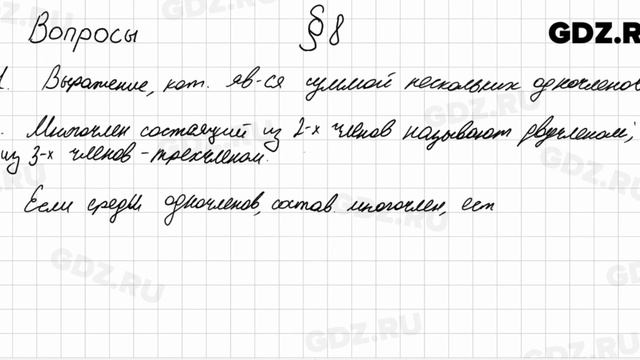 Вопросы § 8
GDZ.RU
1. Выражение, кот. яв-ся суммой нескольких одночленов
. Многочлен состоящий из 2-х членов называют двучленом;
из 3-х членов - трехчленом.
Если среди одночленов, состав. многочлен, ест
GDZ.RU
GDZ.RU
GDZ.RU